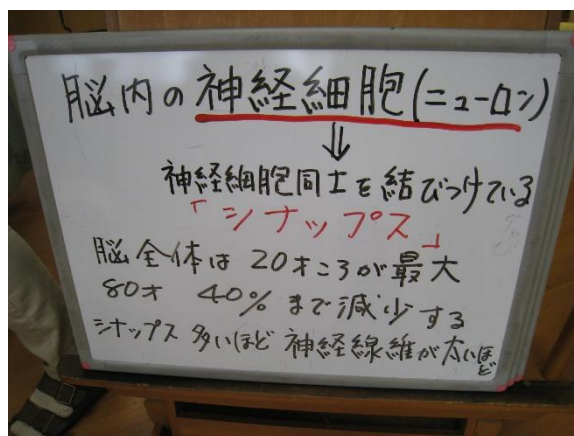 脳内の神経細胞(ニューロン)
⇓
神経細胞同士を結びつけている
「シナップス」
脳全体は20才ころが最大
80才 40%まで減少する
シナップス多いほど神経線維が太いほど